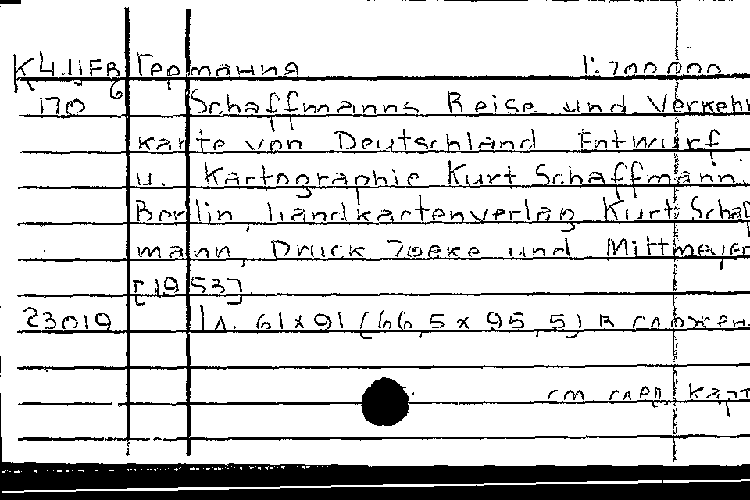 К4.IIFв Германия 1:700 000
170 Schaffmanns Reise und Verkehr
karte von Deutschland Entwurf
u. Kartographie Kurt Schaffmann.
Berlin, Landkartenverlag Kurt Schaf
mann, Druck Zoeke und Mittmeyer
[1953]
23019 1 л. 61x91 (66,5x95,5) в сложен
см след карт